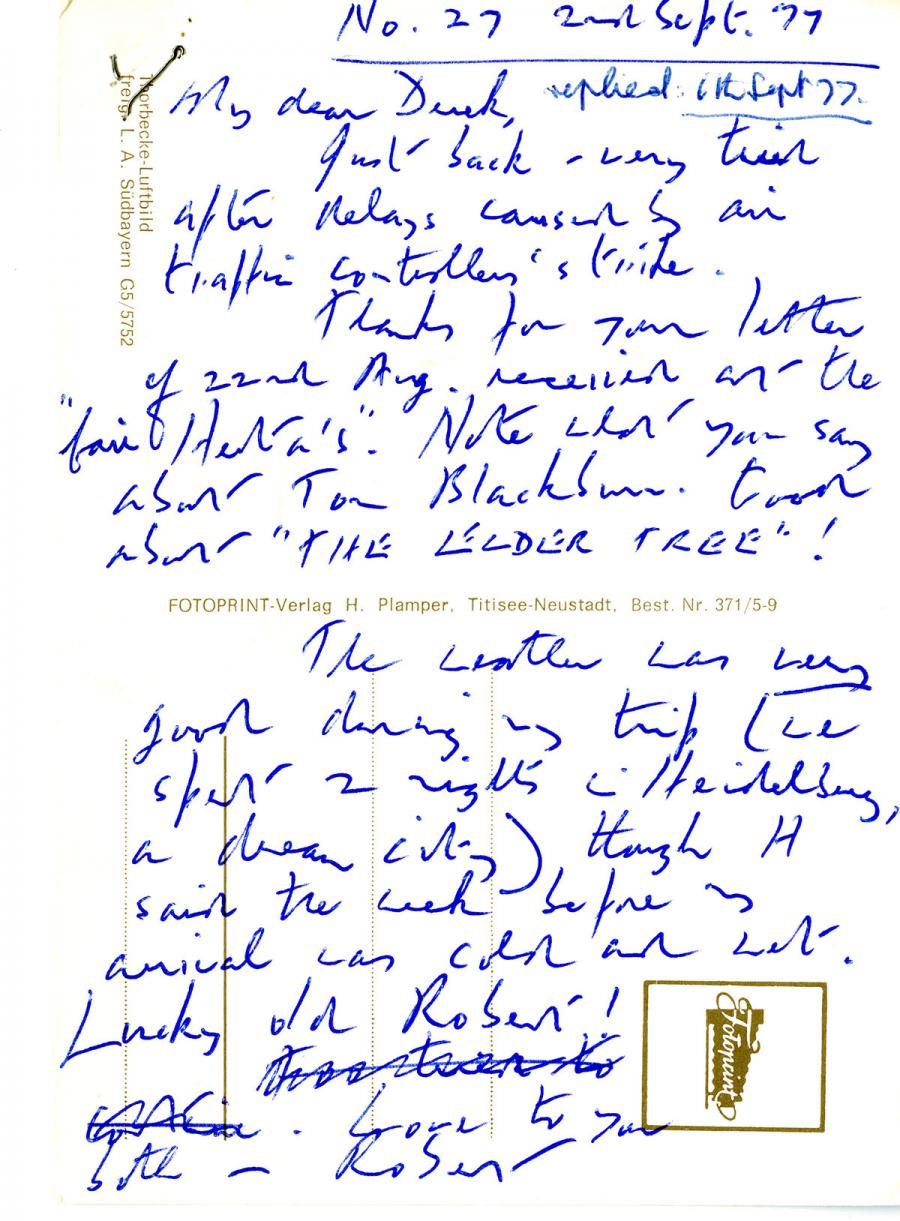 No. 27 2nd Sept. 77
replied: 6th Sept 77.
My dear Derek,
Just back - very tired
after delays caused by air
traffic controllers' strike.
Thanks for your letter
of 22nd Aug. received at the
"fair Herta's". Note what you say
about Tom Blackburn. Good
about "THE ELDER TREE"!
Thorbecke-Luftbild
freig. L. A. Südbayern G5/5752
FOTOPRINT-Verlag H. Plamper, Titisee-Neustadt, Best. Nr. 371/5-9
The weather was very
good during my trip (we
spent 2 nights in Heidelberg,
a dream city) though H
said the week before my
arrival was cold and wet.
Lucky old Robert!
Love to you
both - Robert
Fotoprint